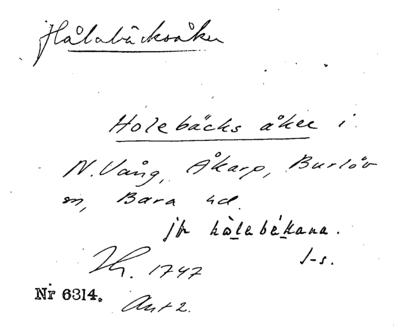 Hålabäcksåker
Holebäcks åker i
N. Vång, Åkarp, Burlöv
sn, Bara hd.
jfr hòlebékana.
J-s.
Lh. 1747
Nr 6314. Akt 2.